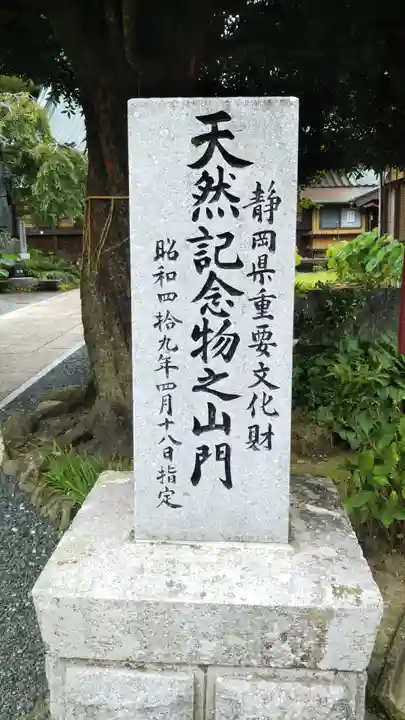 静岡県重要文化財
天然記念物之山門
昭和四拾九年四月十八日指定